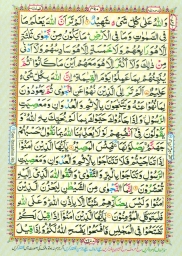 وَاللّٰهُ عَلٰى كُلِّ شَىْءٍ شَهِيْدٌ اَلَمْ تَرَ اَنَّ اللّٰهَ يَعْلَمُ مَا
فِى السَّمٰوٰتِ وَمَا فِى الْاَرْضِ مَا يَكُوْنُ مِنْ نَّجْوٰى ثَلٰثَةٍ
اِلَّا هُوَ رَابِعُهُمْ وَلَا خَمْسَةٍ اِلَّا هُوَ سَادِسُهُمْ وَلَا اَدْنٰى
مِنْ ذٰلِكَ وَلَا اَكْثَرَ اِلَّا هُوَ مَعَهُمْ اَيْنَ مَا كَانُوْا ثُمَّ
يُنَبِّئُهُمْ بِمَا عَمِلُوْا يَوْمَ الْقِيٰمَةِ اِنَّ اللّٰهَ بِكُلِّ شَىْءٍ
عَلِيْمٌ اَلَمْ تَرَ اِلَى الَّذِيْنَ نُهُوْا عَنِ النَّجْوٰى ثُمَّ يَعُوْدُوْنَ
لِمَا نُهُوْا عَنْهُ وَيَتَنٰجَوْنَ بِالْاِثْمِ وَالْعُدْوَانِ وَمَعْصِيَتِ
الرَّسُوْلِ وَاِذَا جَآءُوْكَ حَيَّوْكَ بِمَا لَمْ يُحَيِّكَ بِهِ اللّٰهُ وَ
يَقُوْلُوْنَ فِىْ اَنْفُسِهِمْ لَوْلَا يُعَذِّبُنَا اللّٰهُ بِمَا نَقُوْلُ
حَسْبُهُمْ جَهَنَّمُ يَصْلَوْنَهَا فَبِئْسَ الْمَصِيْرُ يٰۤاَيُّهَا الَّذِيْنَ اٰمَنُوْۤا
اِذَا تَنَاجَيْتُمْ فَلَا تَتَنَاجَوْا بِالْاِثْمِ وَالْعُدْوَانِ وَمَعْصِيَتِ
الرَّسُوْلِ وَتَنَاجَوْا بِالْبِرِّ وَالتَّقْوٰى وَاتَّقُوا اللّٰهَ الَّذِىْۤ اِلَيْهِ
تُحْشَرُوْنَ اِنَّمَا النَّجْوٰى مِنَ الشَّيْطٰنِ لِيَحْزُنَ الَّذِيْنَ
اٰمَنُوْا وَلَيْسَ بِضَآرِّهِمْ شَيْئًا اِلَّا بِاِذْنِ اللّٰهِ وَعَلَى اللّٰهِ
فَلْيَتَوَكَّلِ الْمُؤْمِنُوْنَ يٰۤاَيُّهَا الَّذِيْنَ اٰمَنُوْۤا اِذَا قِيْلَ لَكُمْ
تَفَسَّحُوْا فِى الْمَجٰلِسِ فَافْسَحُوْا يَفْسَحِ اللّٰهُ لَكُمْ وَاِذَا قِيْلَ